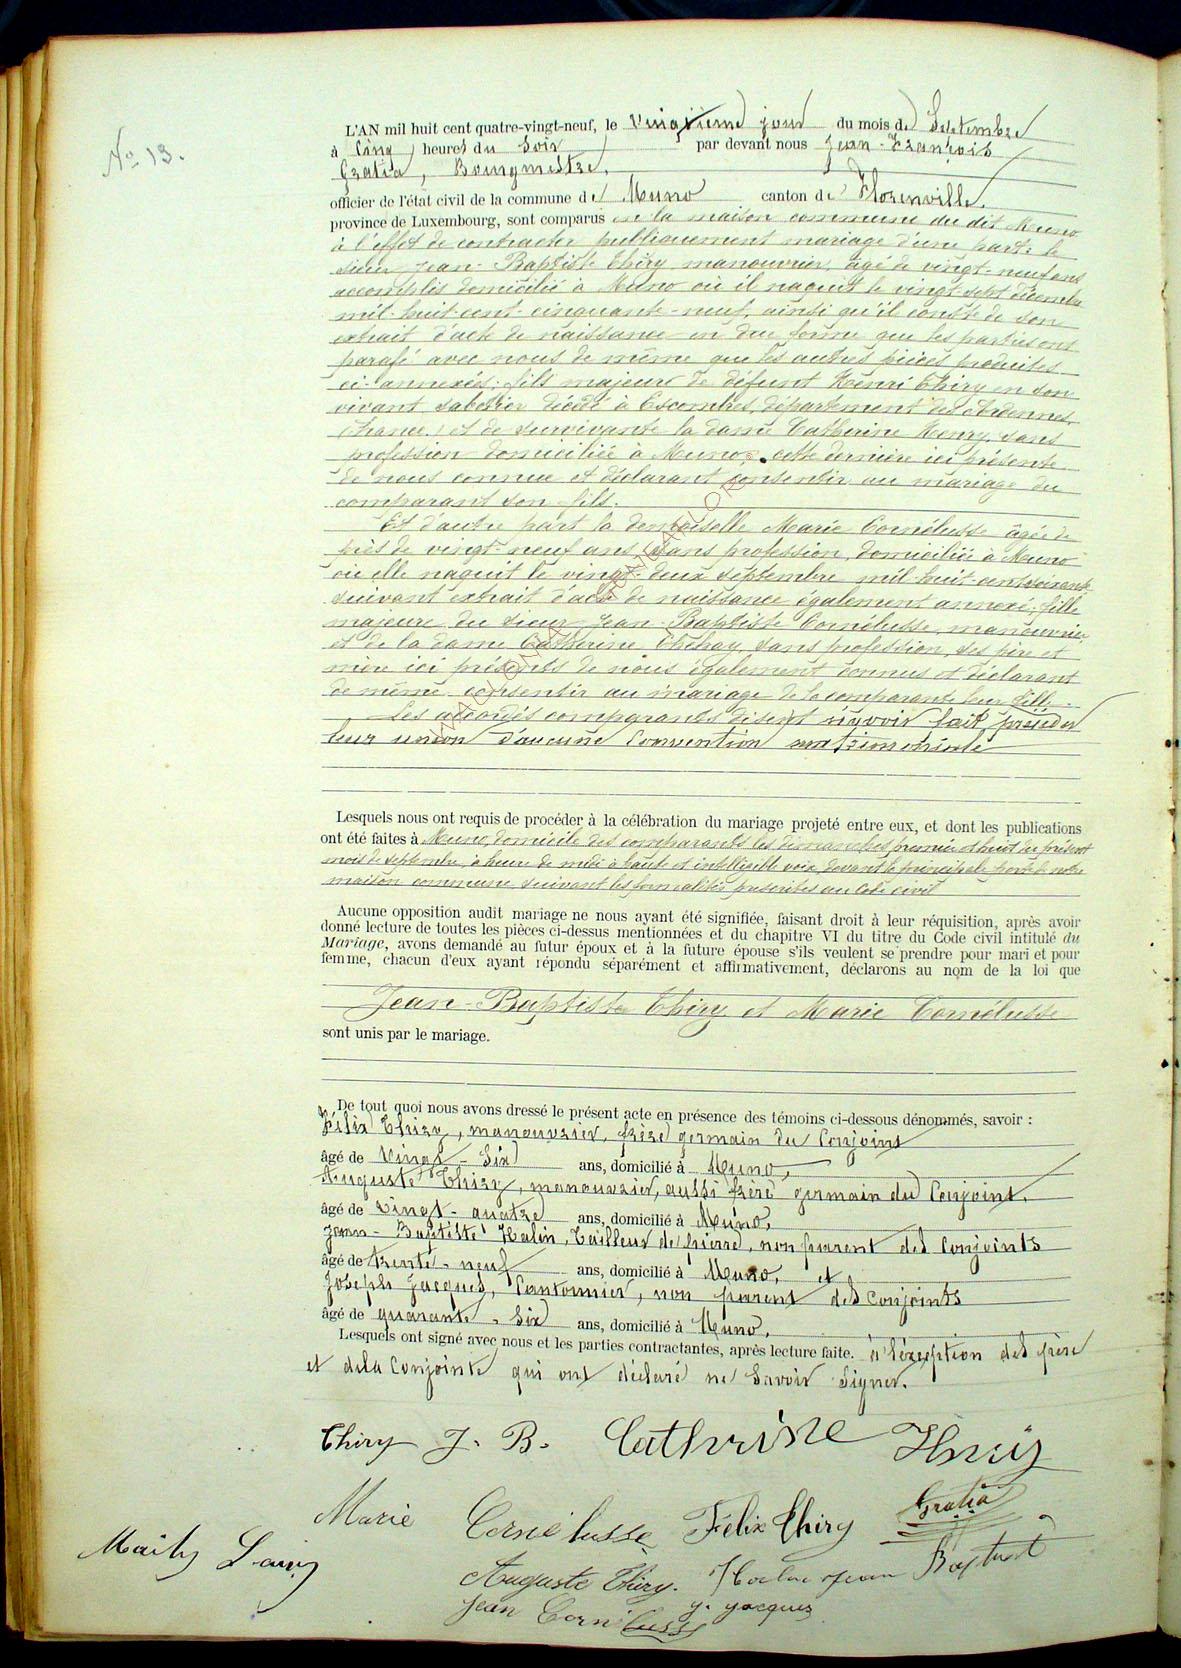 No 13.
L'AN mil huit cent quatre-vingt-neuf, le vingtième jour du mois de Septembre
à cinq heures du soir par devant nous Jean-François
Gratia, Bourgmestre,
officier de l'état civil de la commune de Muno canton de Florenville,
province de Luxembourg, sont comparus en la maison commune du dit Muno
à l'effet de contracter publiquement mariage d'une part: le
sieur Jean-Baptiste Thiry manouvrier, âgé de vingt-neuf ans
accomplis domicilié à Muno où il naquit le vingt-sept décembre
mil-huit-cent-cinquante-neuf, ainsi qu'il conste de son
extrait d'acte de naissance en due forme que les parties ont
parafé avec nous de même que les autres pièces produites
ci-annexées; fils majeur de défunt Henri Thiry en son
vivant sabotier décédé à Escombres, département des Ardennes,
(France) et de survivante la dame Catherine Henry, sans
profession domiciliée à Muno, cette dernière ici présente
de nous connue et déclarant consentir au mariage du
comparant son fils.
Et d'autre part la demoiselle Marie Cornélusse âgée de
près de vingt-neuf ans, sans profession, domiciliée à Muno
où elle naquit le vingt-deux septembre mil huit-cent soixante
suivant extrait d'acte de naissance également annexé; fille
majeure du sieur Jean-Baptiste Cornélusse, manouvrier
et de la dame Catherine sans profession, ses père et
mère ici présents de nous également connus et déclarant
de même consentir au mariage de la comparante leur fille.
Les accordés comparants disent n'avoir fait précéder
leur union d'aucune convention matrimoniale
Lesquels nous ont requis de procéder à la célébration du mariage projeté entre eux, et dont les publications
ont été faites à Muno, domicile des comparants les dimanches premier et huit du présent
mois de septembre, à heure de midi à haute et intelligible voix, devant la principale porte de notre
maison commune, suivant les formalités prescrites au Code civil
Aucune opposition audit mariage ne nous ayant été signifiée, faisant droit à leur réquisition, après avoir
donné lecture de toutes les pièces ci-dessus mentionnées et du chapitre VI du titre du Code civil intitulé du
Mariage, avons demandé au futur époux et à la future épouse s'ils veulent se prendre pour mari et pour
femme, chacun d'eux ayant répondu séparément et affirmativement, déclarons au nom de la loi que
Jean-Baptiste Thiry et Marie Cornélusse
sont unis par le mariage.
De tout quoi nous avons dressé le présent acte en présence des témoins ci-dessous dénommés, savoir :
Félix Thiry, manouvrier, frère germain du Conjoint
âgé de vingt-six ans, domicilié à Muno,
Auguste Thiry, manouvrier, aussi frère germain du Conjoint,
âgé de vingt-quatre ans, domicilié à Muno,
Jean-Baptiste Halin, Tailleur de pierre, non parent des conjoints
âgé de trente-neuf ans, domicilié à Muno, et
Joseph Jacques, Cantonnier, non parent des conjoints
âgé de quarante-six ans, domicilié à Muno.
Lesquels ont signé avec nous et les parties contractantes, après lecture faite. à l'exception des père
et de la Conjointe qui ont déclaré ne savoir signer.
Thiry J. B. Catherine Henry
Marie Cornélusse Félix Thiry Gratia
Auguste Thiry. Jean Baptist
Jean Cornélusse J. Jacques